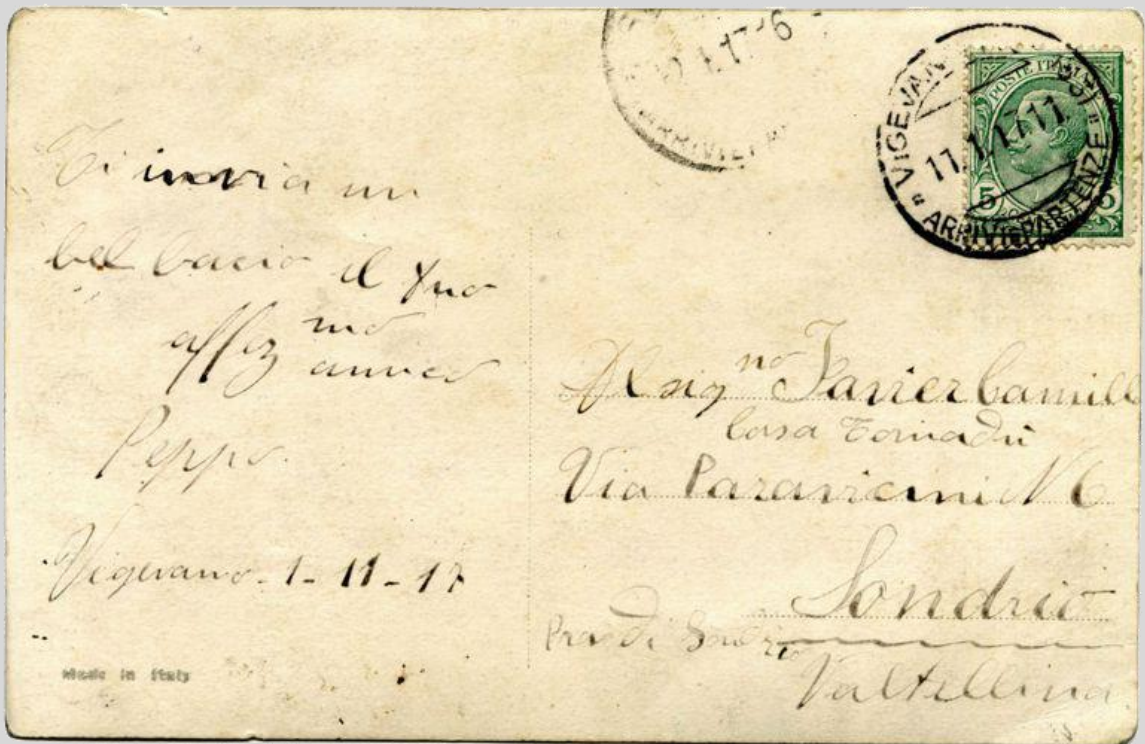 Ti invia un
bel bacio il tuo
affez mo
amico
Peppo.
Vigevano - 1 - 11 - 17
Made in Italy
12.1.17 16
"VIGEVANO
11.1.17.11
ARRIVI E PARTENZE"
POSTE ITALIANE
5 5
Al sig no Favier Camill
Casa Tornadù
Via Paravicini N 6
Sondrio
Prov di Sondrio
Valtellina